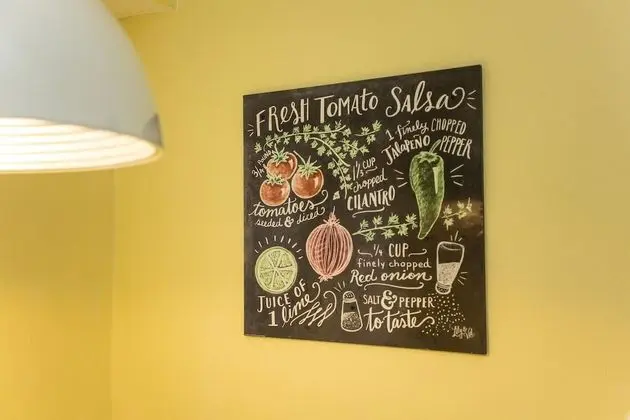 FRESH TOMATO SALSA
1 finely CHOPPED
JALAPEÑO PEPPER
tomatoes
seeded & diced
CUP
chopped
CILANTRO
1/4 CUP
finely chopped
Red onion
JUICE OF
1 lime
SALT & PEPPER
to taste
Lily & Val